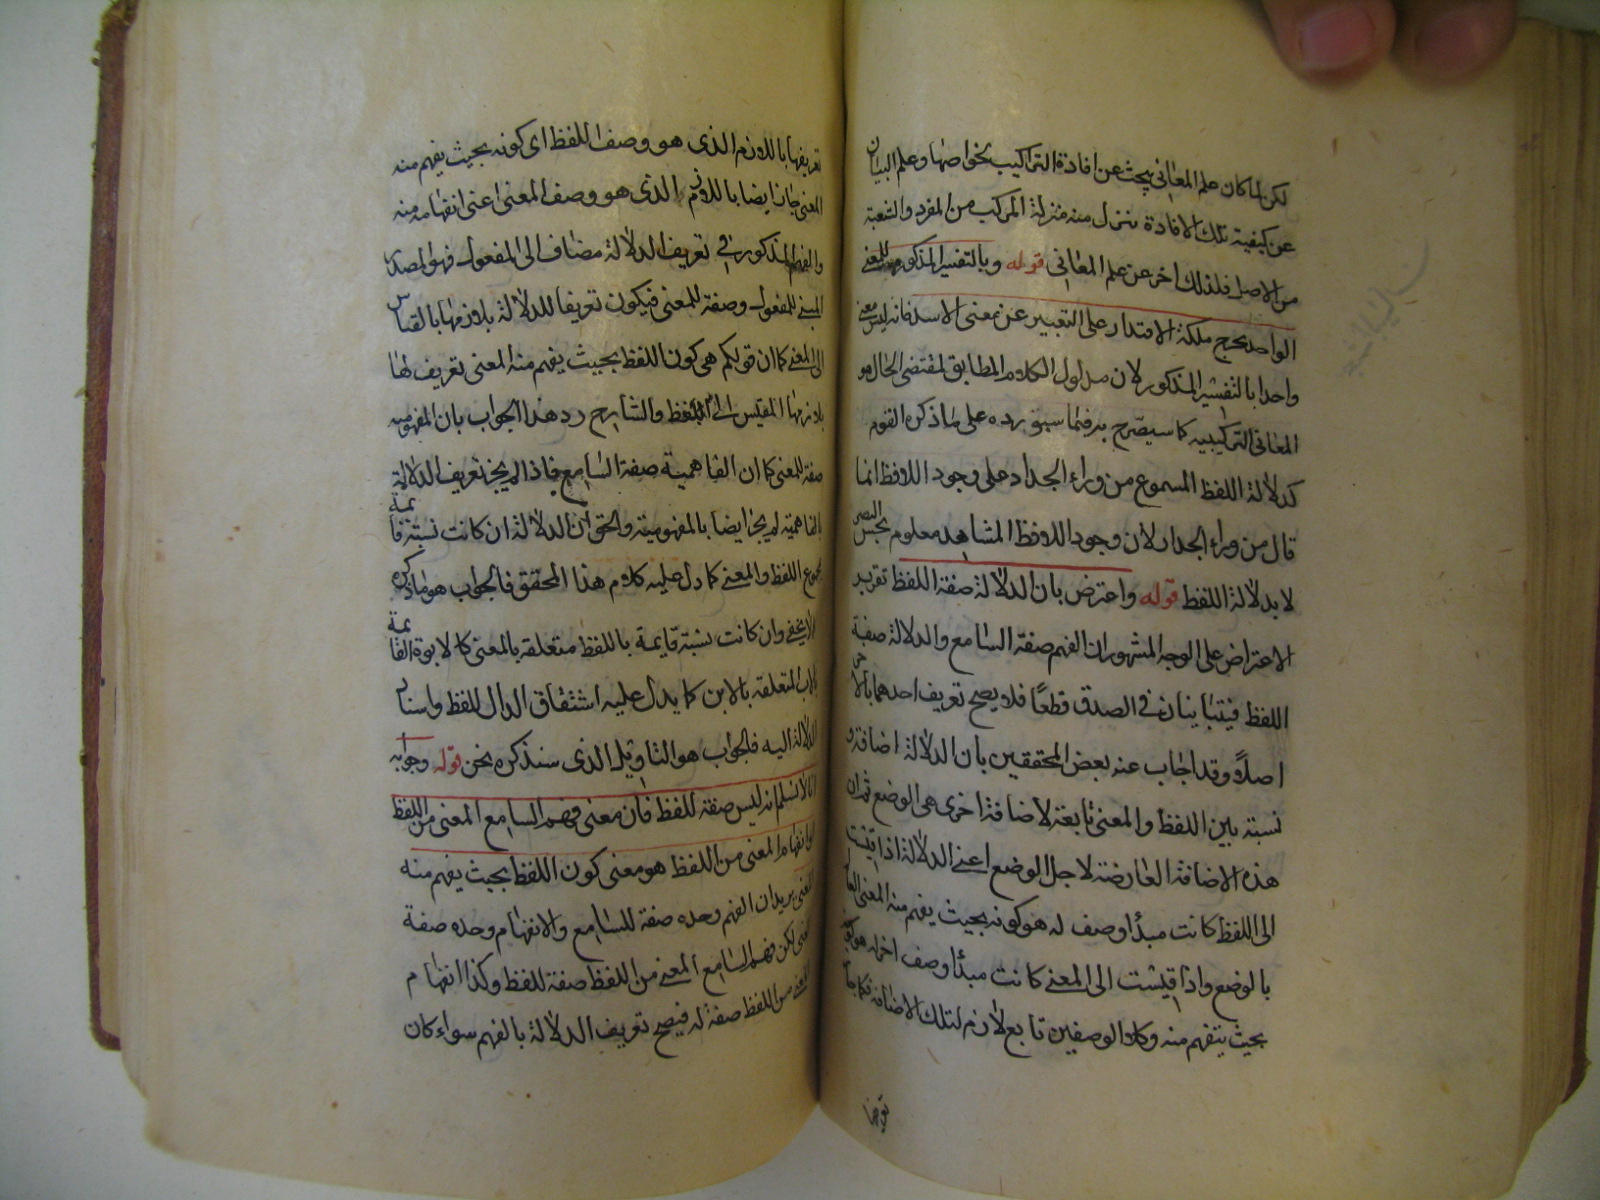 لكن لما كان علم المعاني يبحث عن افادة التراكيب بخواصها وعلم البيان
عن كيفية تلك الافادة تنزل منه منزلة المركب من المفرد والشعبة
من الاصل فلذلك اخر عن علم المعاني قوله وبالتفسير المذكور للمعنى
الواحد يخرج ملكة الاقتدار على التعبير عن معنى الاسد فانه ليس معنى
واحدا بالتفسير المذكور لان مدلول الكلام المطابق لمقتضى الحال هو
المعاني التركيبيه كما سيصرح به فيما سيورده على ما ذكره القوم
كدلالة اللفظ المسموع من وراء الجدار على وجود اللافظ انما
قال من وراء الجدار لان وجود اللافظ المشاهد معلوم بحس البصر
لا بدلالة اللفظ قوله واعترض بان الدلالة صفة اللفظ تقرير
الاعتراض على الوجه المشهور ان الفهم صفة السامع والدلالة صفة
اللفظ فيتباينان في الصدق قطعًا فلا يصح تعريف احدهما بالاخر
اصلاً وقد اجاب عنه بعض المحققين بان الدلالة اضافة و
نسبة بين اللفظ والمعنى تابعة لاضافة اخرى هي الوضع ثم ان
هذه الاضافة العارضة لاجل الوضع اعنى الدلالة اذا قيست
الى اللفظ كانت مبدأ وصف له هو كونه بحيث يفهم منه المعنى العالم
بالوضع واذا قيست الى المعنى كانت مبدأ وصف اخر له هو كونه
بحيث يتفهم منه وكلا الوصفين تابع لازم لتلك الاضافة فكما جاز
تعريفها باللازم الذى هو وصف اللفظ اى كونه بحيث يفهم منه
المعنى جاز ايضا باللازم الذى هو وصف المعنى اعنى انفهامه منه
والفهم المذكور في تعريف الدلالة مضاف الى المفعول فهو المصدر
المبنى للمفعول وصفة للمعنى فيكون تعريفا للدلالة بلازمها بالقياس
الى المعنى كما ان قولكم هى كون اللفظ بحيث يفهم منه المعنى تعريف لها
بلازمها المقيس الى اللفظ والشارح رد هذا الجواب بان المفهومية
صفة للمعنى كما ان الفاهمية صفة السامع فاذا لم يجز تعريف الدلالة
بالفاهمية لم يجز ايضا بالمفهومية والحق ان الدلالة ان كانت نسبة قائمة
بمجموع اللفظ والمعنى كما دل عليه كلام هذا المحقق فالجواب هو ما ذكره
لا يخفى وان كانت نسبة قايمة باللفظ متعلقة بالمعنى كالابوة القائمة
بالاب المتعلقة بالابن كما يدل عليه اشتقاق الدال للفظ واسناد
الدلالة اليه فالجواب هو التاويل الذى سنذكره نحن قوله وجوابه
انا لا نسلم انه ليس صفة للفظ فان معنى فهم السامع المعنى من اللفظ
او انفهام المعنى من اللفظ هو معنى كون اللفظ بحيث يفهم منه
المعنى يريد ان الفهم وحده صفة للسامع والانفهام وحده صفة
المعنى لكن فهم السامع المعنى من اللفظ صفة للفظ وكذا انفهام
المعنى من اللفظ صفة له فيصح تعريف الدلالة بالفهم سواء كان